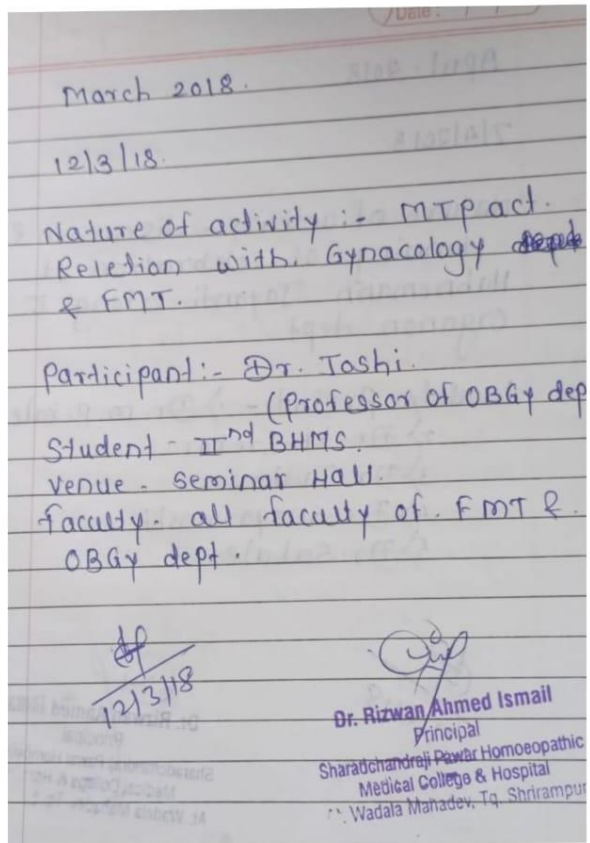 Date :
March 2018.
12/3/18.
Nature of activity :- MTP act.
Reletion with. Gynacology
& FMT.
Participant :- Dr. Joshi.
(Professor of OBGy dep
Student - IInd BHMS.
Venue - Seminar Hall.
faculty - all faculty of. FMT &
OBGy dept.
12/3/18
Dr. Rizwan Ahmed Ismail
Principal
Sharadchandraji Pawar Homoeopathic
Medical College & Hospital
Wadala Mahadev, Tq. Shrirampur